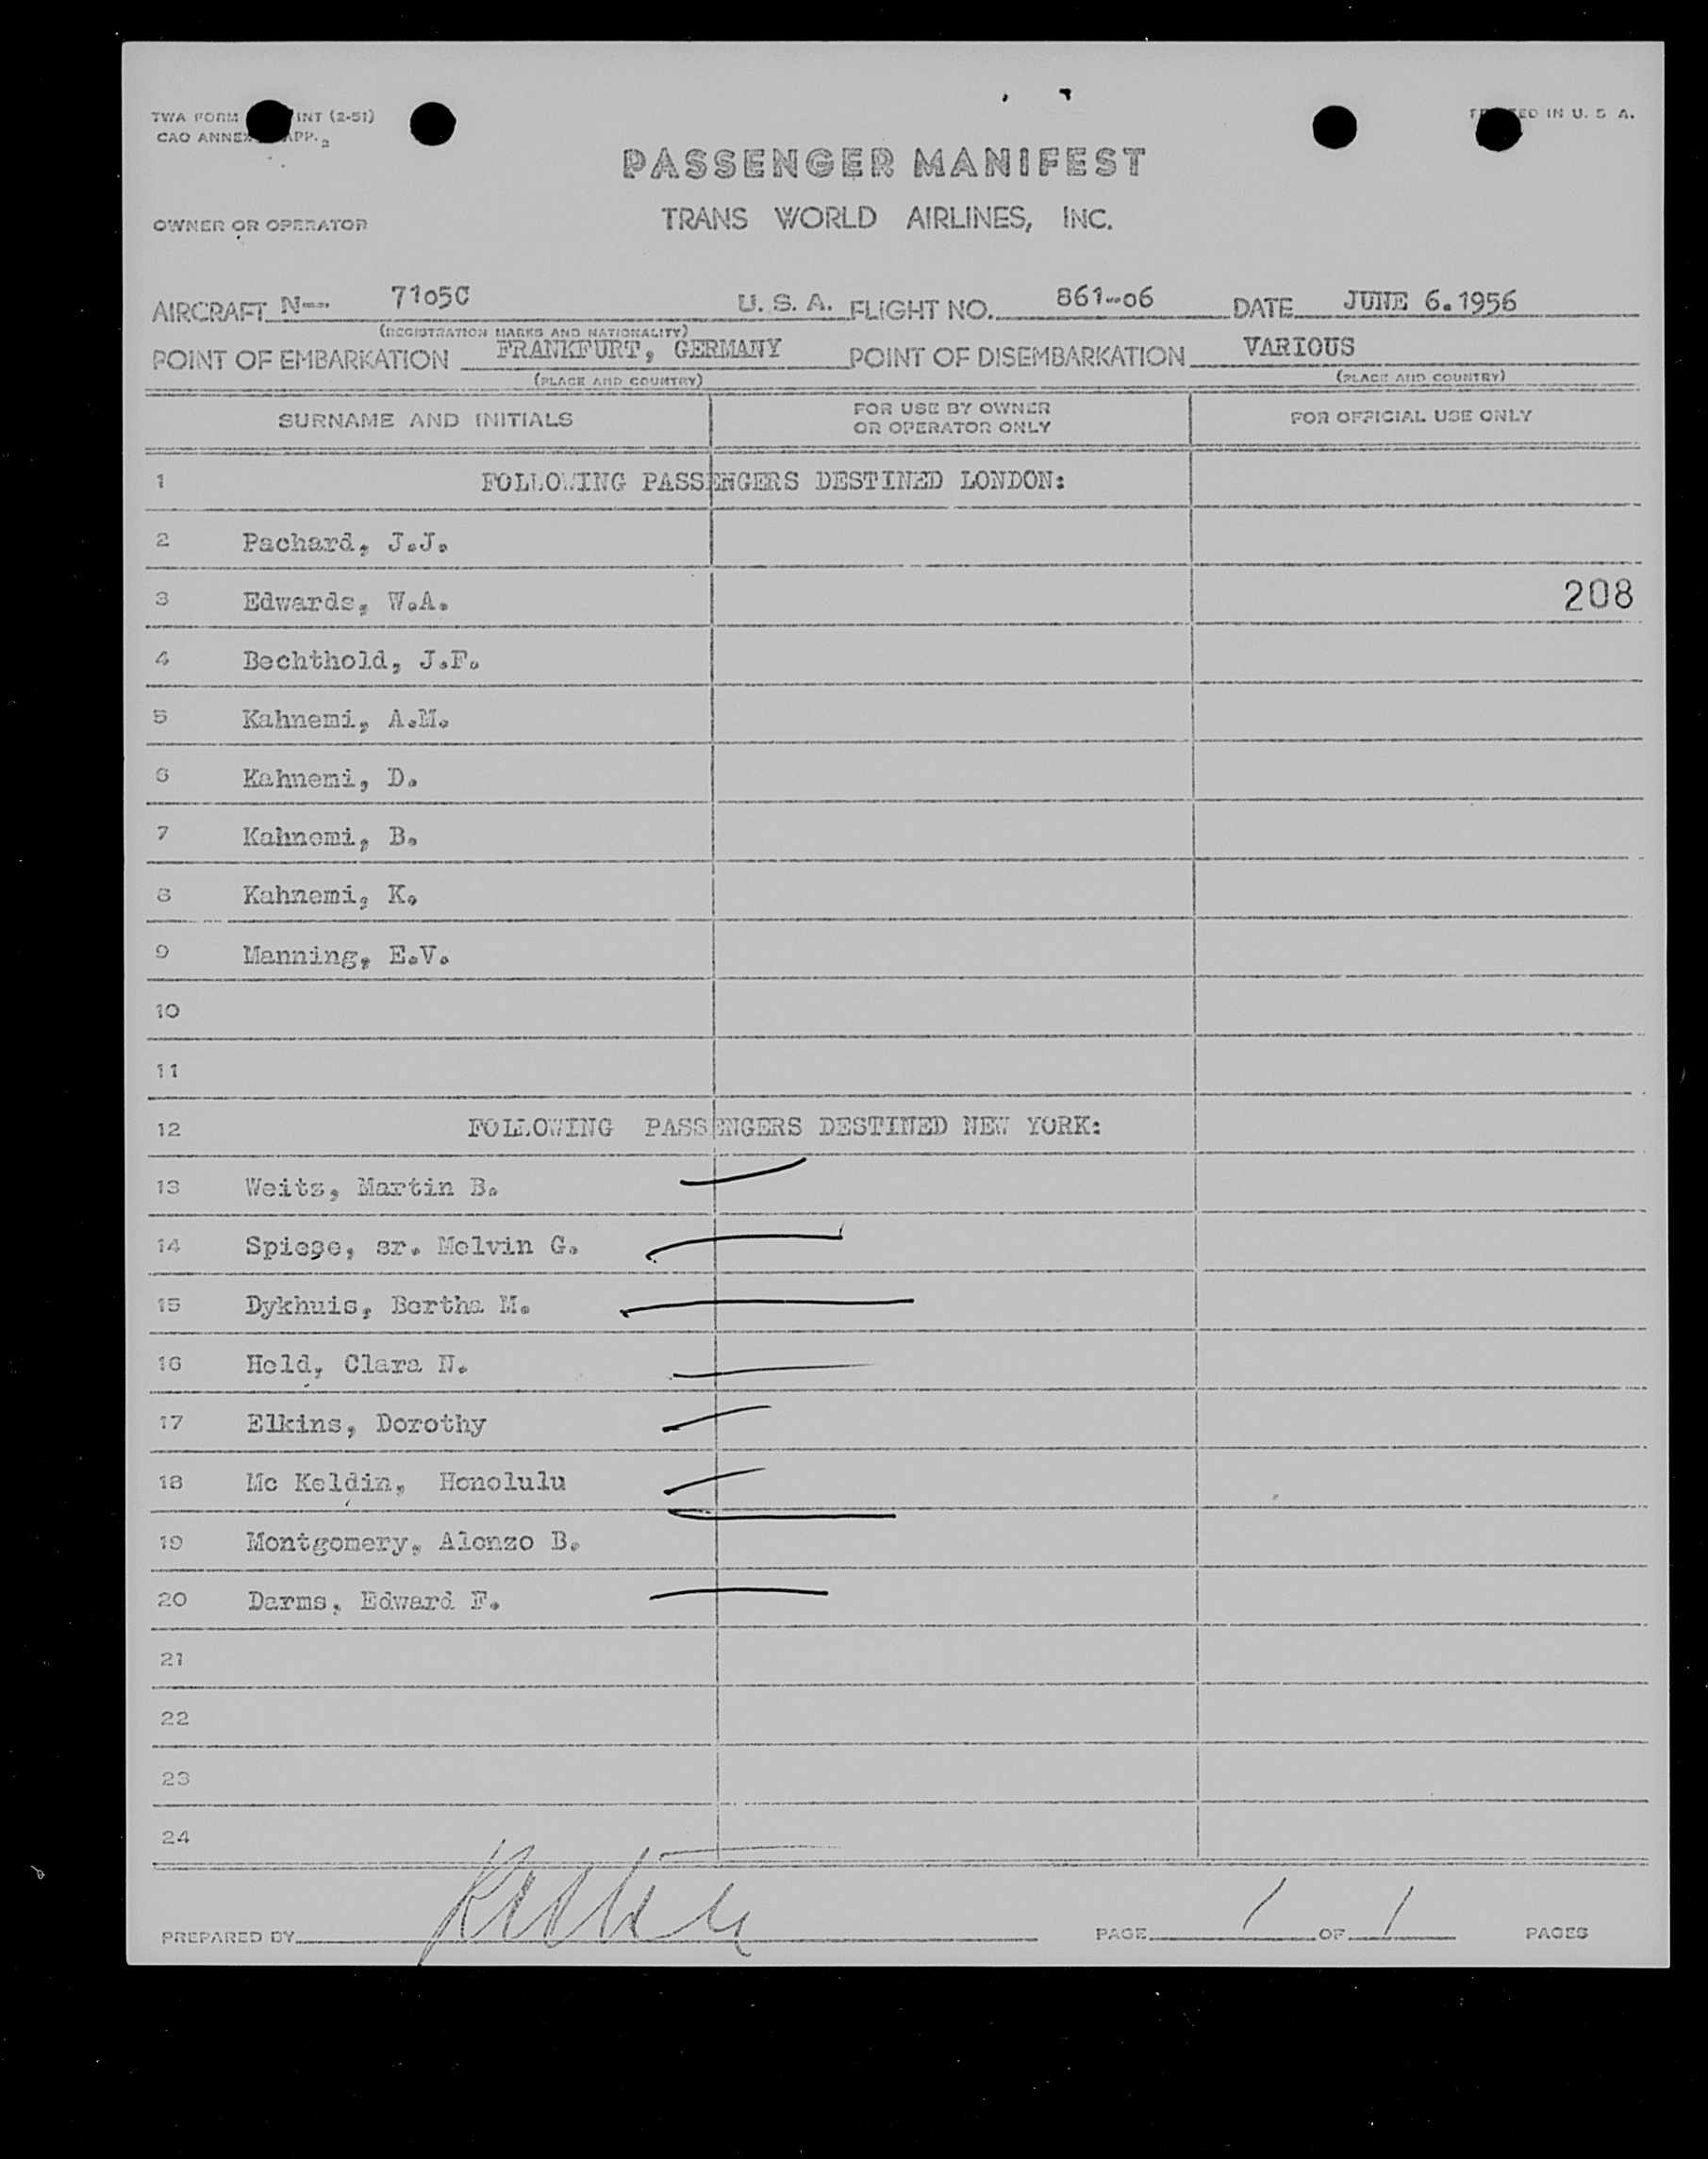 TWA FORM INT (2-51)
CAO ANNEX APP. 2
PRINTED IN U. S. A.
PASSENGER MANIFEST
OWNER OR OPERATOR
TRANS WORLD AIRLINES, INC.
AIRCRAFT N-- 7105C U. S. A. FLIGHT NO. 861-06 DATE JUNE 6.1956
(REGISTRATION MARKS AND NATIONALITY)
POINT OF EMBARKATION FRANKFURT, GERMANY POINT OF DISEMBARKATION VARIOUS
(PLACE AND COUNTRY) (PLACE AND COUNTRY)
SURNAME AND INITIALS
FOR USE BY OWNER
OR OPERATOR ONLY
FOR OFFICIAL USE ONLY
1 FOLLOWING PASSENGERS DESTINED LONDON:
2 Pachard, J.J.
3 Edwards, W.A. 208
4 Bechthold, J.F.
5 Kahnemi, A.M.
6 Kahnemi, D.
7 Kahnemi, B.
8 Kahnemi, K.
9 Manning, E.V.
10
11
12 FOLLOWING PASSENGERS DESTINED NEW YORK:
13 Weitz, Martin B.
14 Spiege, sr. Melvin G.
15 Dykhuis, Bertha M.
16 Held, Clara N.
17 Elkins, Dorothy
18 Mc Keldin, Honolulu
19 Montgomery, Alonzo B.
20 Darms, Edward F.
21
22
23
24
PREPARED BY PAGE 1 OF 1 PAGES